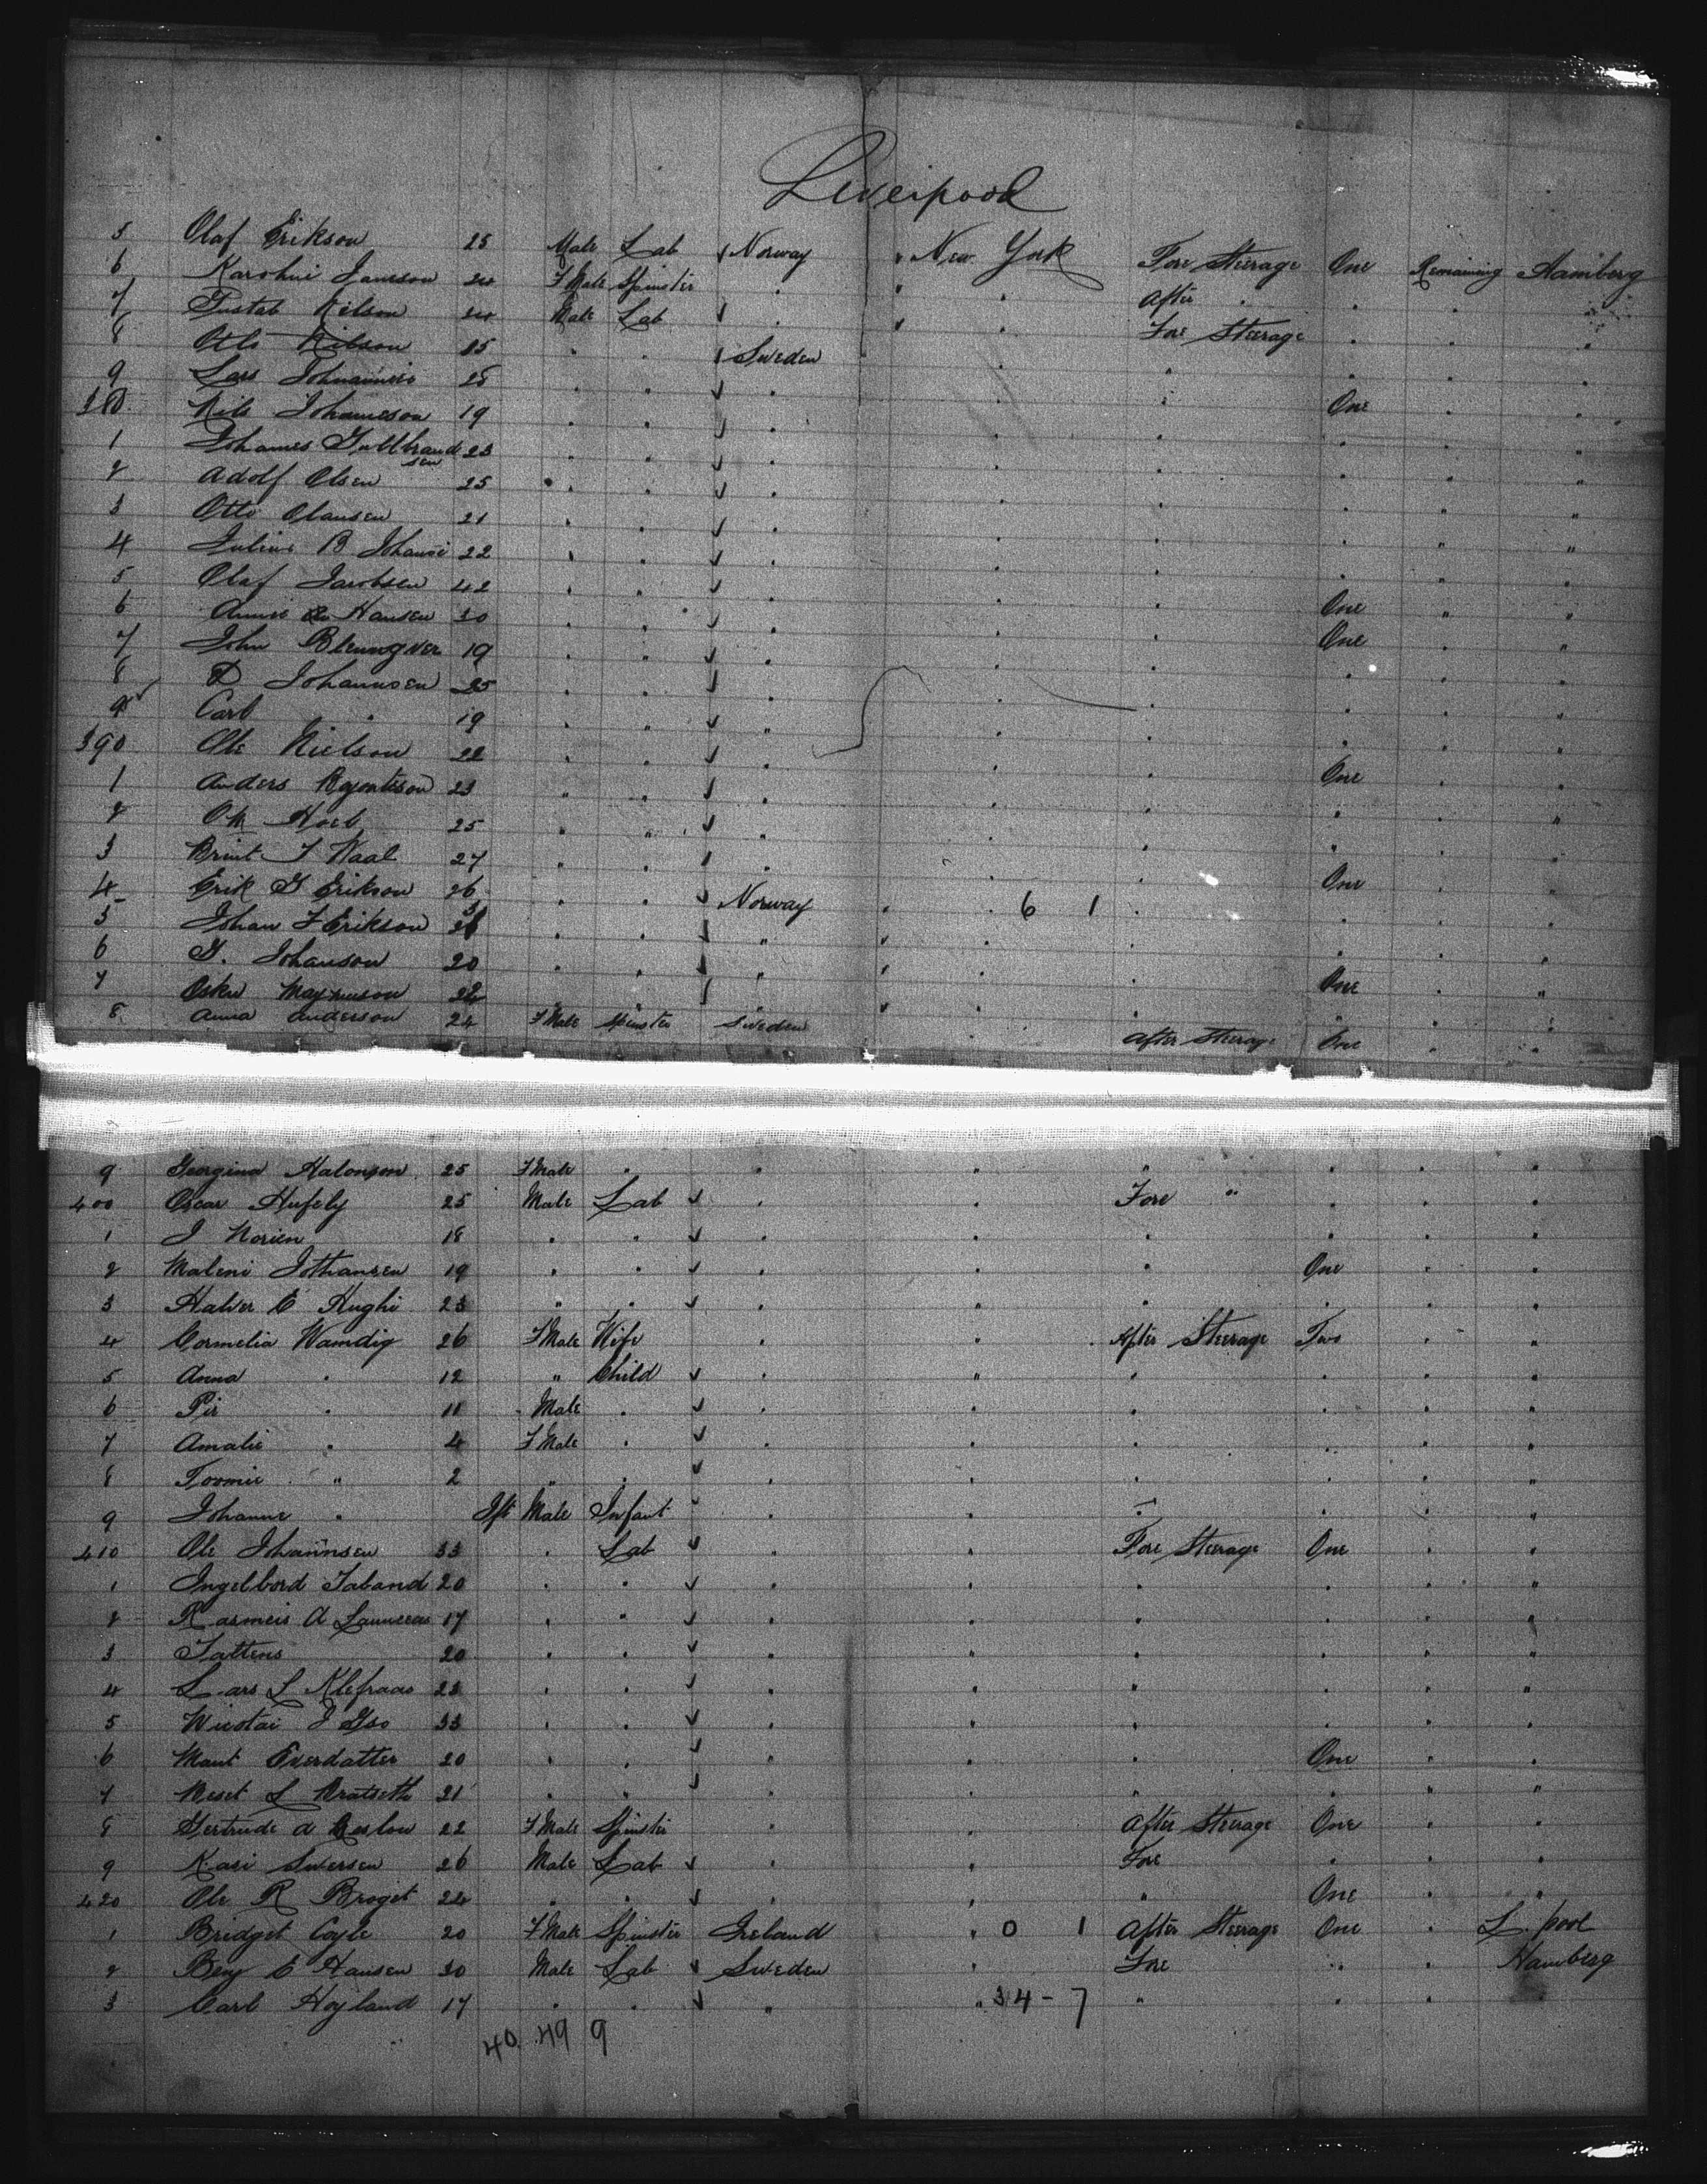 Liverpool
5 Olaf Erikson 25 Male Lab Norway New York Fore Steerage One Remaining Hamberg
6 Karohni Jansson 24 FMale Spinster " " " After " " " "
7 Gustab Nilson 24 Male Lab " " " Fore Steerage " " "
8 Otto Nilson 25 " " Sweden " " " " "
9 Lars 25 " " " " " " " "
380 Nils Johanneson 19 " " " " " One " "
1 Johannes Gullbrandsen 23 " " " " " " " "
2 Adolf Olsen 25 " " " " " " " "
3 Otto Olausen 21 " " " " " " " "
4 Julius B 22 " " " " " " " "
5 Olaf Jacobsen 42 " " " " " " " "
6 Hansen 30 " " " " " One " "
7 John 19 " " " " " One " "
8 Johannsen 25 " " " " " " " "
9 Carl " 19 " " " " " " " "
390 Ole Nielson 22 " " " " " " " "
1 Anders 23 " " " " " One " "
2 25 " " " " " " " "
3 27 " " " " " " " "
4 Erik G Erikson 26 " " Norway " " 6 1 " One " "
5 Johan F Erikson " " " " " " " " "
6 G. Johanson 20 " " " " " " " " "
7 22 " " " " " " One " "
8 Anna Anderson 24 FMale Spinster Sweden " After Steerage One " "
9 Georgina Halonson 25 FMale " " " " " " "
400 Oscar Hufely 25 Male Lab " " Fore " " " "
1 J Norien 18 " " " " " " " "
2 Maleni Jothansen 19 " " " " " One " "
3 Halver E Hughi 23 " " " " " " " "
4 Cormelia Wamdig 26 FMale Wife " " After Steerage Two " "
5 Anna " 12 " Child " " " " " "
6 Pir " 11 Male " " " " " " "
7 Amalie " 4 FMale " " " " " " "
8 Toomie " 2 " " " " " " " "
9 Johanne " Ift Male Infant " " " " " "
410 Ole Johannsen 33 " Lab " " Fore Steerage One " "
1 Ingelbord Taband 20 " " " " " " " "
2 Rasmeis A 17 " " " " " " " "
3 Tattens 20 " " " " " " " "
4 Lars L Klefraas 23 " " " " " " " "
5 Wicotai J Gso 33 " " " " " " " "
6 Maut Everdatter 20 " " " " " One " "
7 L Bratseth 21 " " " " " " " "
8 Gertrude A Beslow 22 FMale Spinster " " After Steerage One " "
9 Kasi Swersen 26 Male Lab " " Fore " " "
420 Ole R Broget 24 " " " " " One " "
1 Bridget Coyle 20 FMale Spinster Ireland " 0 1 After Steerage One " L. pool
2 Benj C Hansen 30 Male Lab Sweden " Fore " " Hamberg
3 Carl Hoyland 17 " " " " 34 - 7 " " "
40 49 9